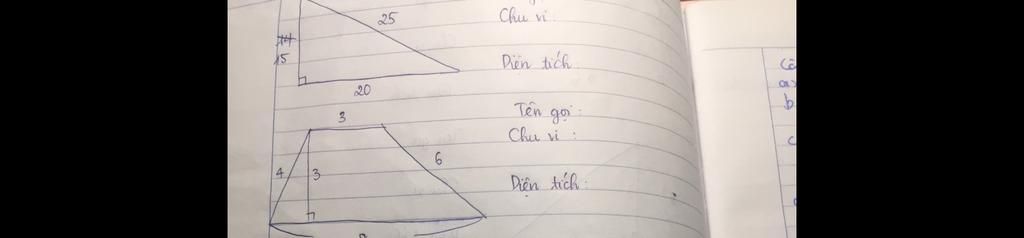 25
Chu vi :
15
Diện tích :
20
Tên gọi :
3
Chu vi :
6
4
3
Diện tích :
b